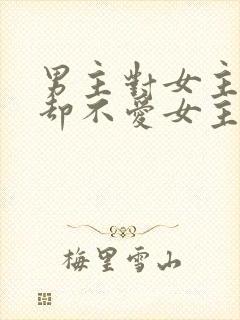 男主對女主
却不愛女主
梅里雪山